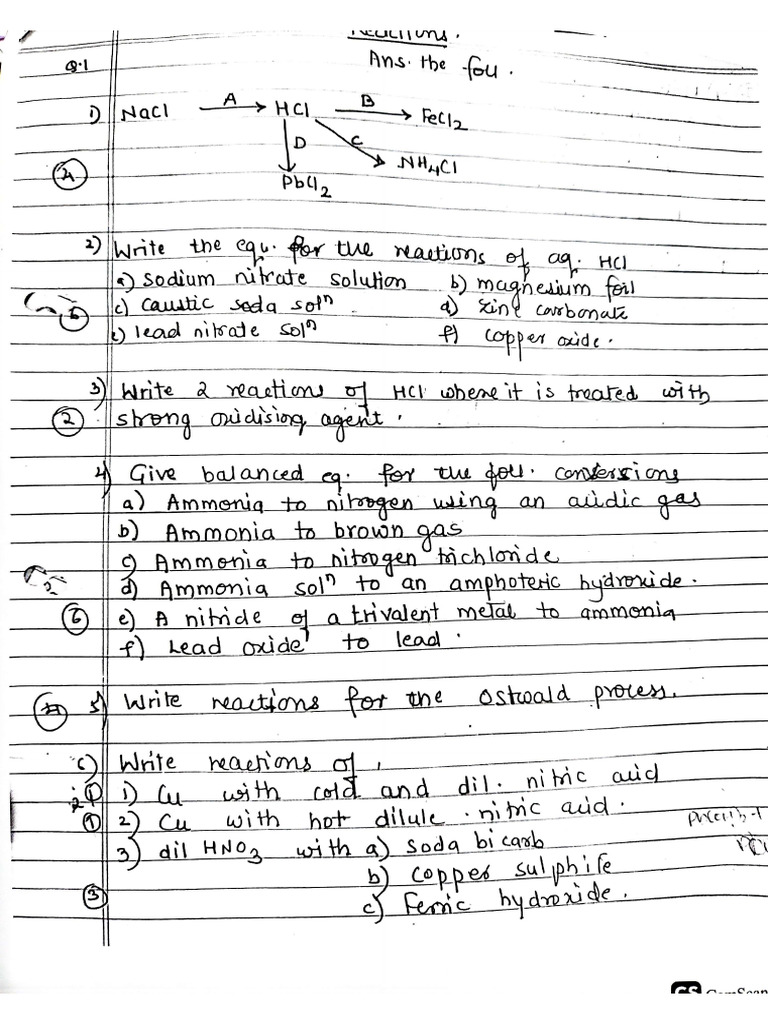 Reactions.
Q.1 Ans. the foll.
1) NaCl A HCl B FeCl2
D C NH4Cl
4 PbCl2
2) Write the equ. for the reactions of aq. HCl
a) sodium nitrate solution b) magnesium foil
c) caustic soda soln d) zinc carbonate
6 e) lead nitrate soln f) copper oxide.
3) Write 2 reactions of HCl where it is treated with
2 strong oxidising agent.
4) Give balanced eq. for the foll. conversions
a) Ammonia to nitrogen using an acidic gas
b) Ammonia to brown gas
c) Ammonia to nitrogen trichloride
d) Ammonia soln to an amphoteric hydroxide.
6 e) A nitride of a trivalent metal to ammonia
f) Lead oxide to lead.
5) Write reactions for the Ostwald process.
6) Write reactions of,
1 1) Cu with cold and dil. nitric acid
1 2) Cu with hot dilute nitric acid.
3) dil HNO3 with a) soda bicarb
b) copper sulphite
3 c) Ferric hydroxide.
CS CamScan